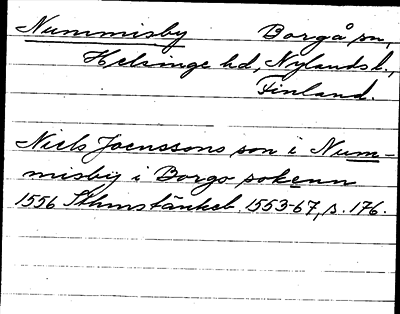 Nummisby Borgå sn,
Helsinge hd, Nylandsl.,
Finland.
Niels Joenssons son i Num-
misby i Borgo sokenn
1556 Sthmstänkeb. 1553-67, s. 176.